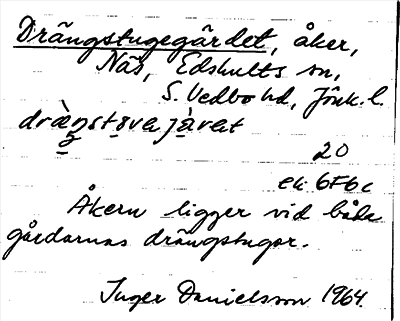 Drängstugegärdet, åker,
Näs, Edshults sn,
S. Vedbo hd, Jönk. l.
dräŋstᴔva jävat
20
ek. 6F6c
Åkern ligger vid båda
gårdarnas drängstugor.
Inger Danielsson 1964.